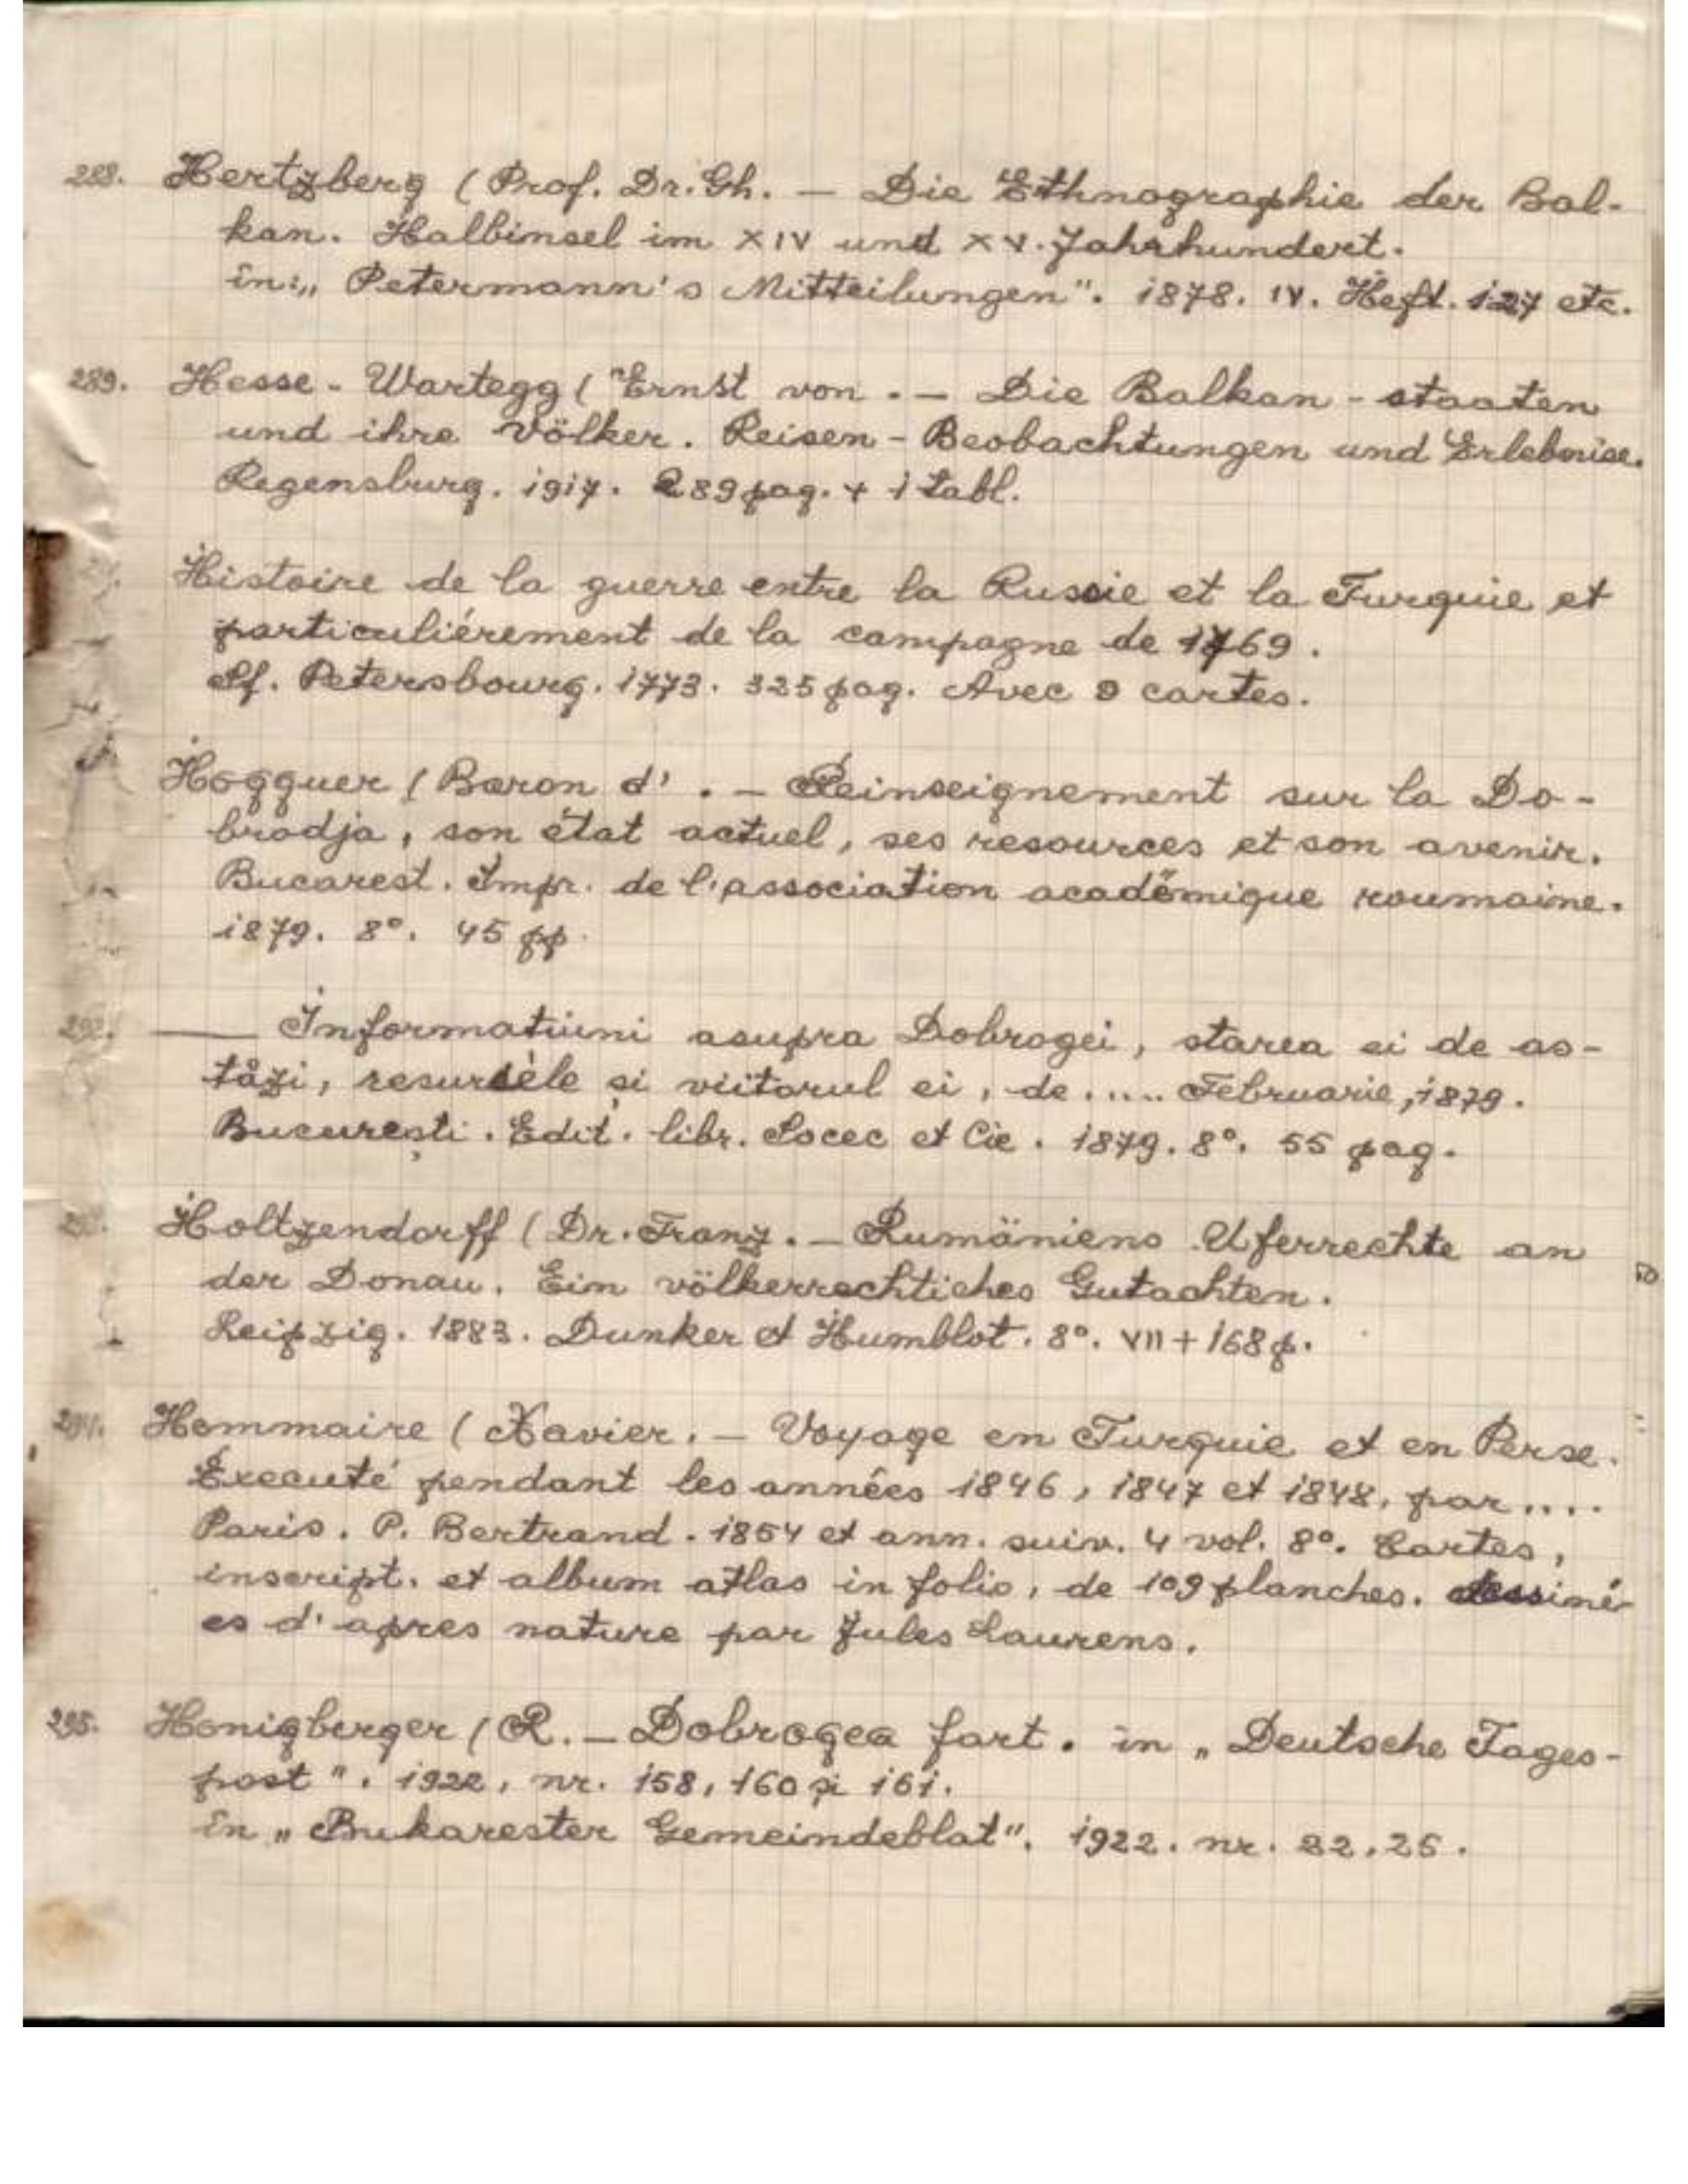 288. Hertzberg (Prof. Dr. Gh. — Die Ethnographie der Bal-
kan. Halbinsel im XIV und XV. Jahrhundert.
in: „Petermann's Mitteilungen". 1878. IV. Heft. 127 etc.
289. Hesse - Wartegg (Ernst von . — Die Balkan - staaten
und ihre Völker. Reisen - Beobachtungen und Erlebnise.
Regensburg. 1917. 289 pag. + 1 tabl.
Histoire de la guerre entre la Russie et la Turquie et
particuliérement de la campagne de 1769.
St. Petersbourg. 1773. 325 pag. Avec 9 cartes.
Hogguer (Baron d' . — Reinseignement sur la Do-
brodja, son état actuel, ses resources et son avenir.
Bucarest. Impr. de l'association académique roumaine.
1879. 8°. 45 pp.
292. —— Informatiuni asupra Dobrogei, starea ei de as-
tăzi, resursele și viitorul ei, de ..... Februarie, 1879.
București. Edit. libr. Socec et Cie. 1879. 8°. 55 pag.
293. Holtzendorff (Dr. Franz. — Rumäniens Uferrechte an
der Donau. Ein völkerrechtiches Gutachten.
Leipzig. 1883. Dunker et Humblot. 8°. VII + 168 p.
294. Hommaire (Xavier. — Voyage en Turquie et en Perse.
Executé pendant les années 1846, 1847 et 1848, par ....
Paris. P. Bertrand. 1854 et ann. suiv. 4 vol. 8°. Cartes,
inscript. et album atlas in folio, de 109 planches. dessiné-
es d'apres nature par Jules Laurens.
295. Honigberger (R. — Dobrogea fart. in „Deutsche Tages-
post". 1922, nr. 158, 160 și 161.
în „Bukarester Gemeindeblat". 1922. nr. 22, 25.